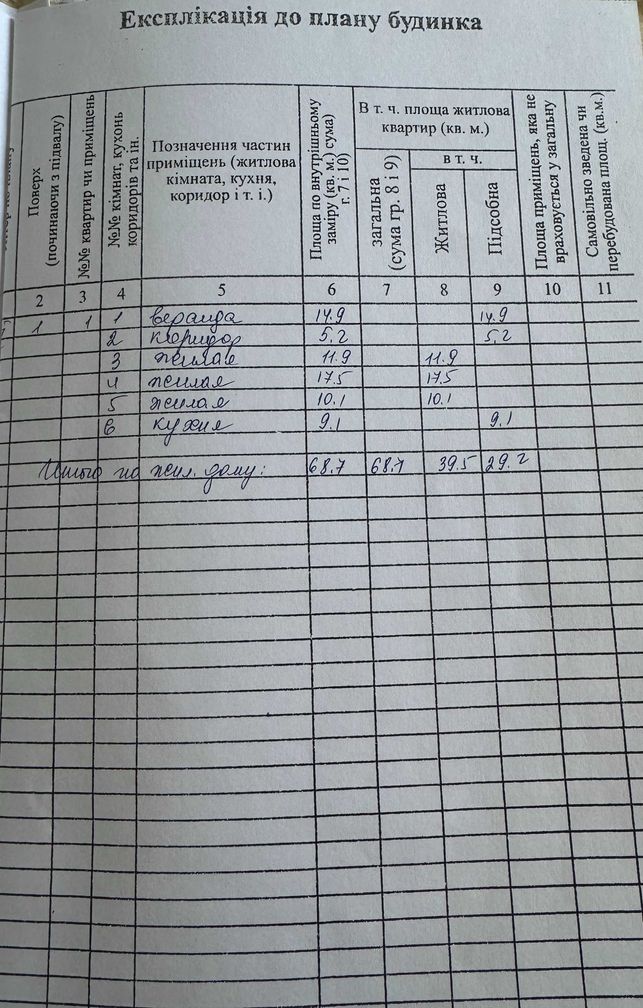 Експлікація до плану будинка
Поверх (починаючи з підвалу)
№№ квартир чи приміщень
№№ кімнат, кухонь коридорів та ін.
Позначення частин приміщень (житлова кімната, кухня, коридор і т. і.)
Площа по внутрішньому заміру (кв. м.) сума) г. 7 і 10)
В т. ч. площа житлова квартир (кв. м.)
загальна (сума гр. 8 і 9)
в т. ч.
Житлова
Підсобна
Площа приміщень, яка не враховується у загальну
Самовільно зведена чи перебудована площ. (кв.м.)
2 3 4 5 6 7 8 9 10 11
1 1 1 веранда 14.9 14.9
2 коридор 5.2 5.2
3 жилая 11.9 11.9
4 жилая 17.5 17.5
5 жилая 10.1 10.1
6 кухня 9.1 9.1
Итого по жил. дому: 68.7 68.7 39.5 29.2